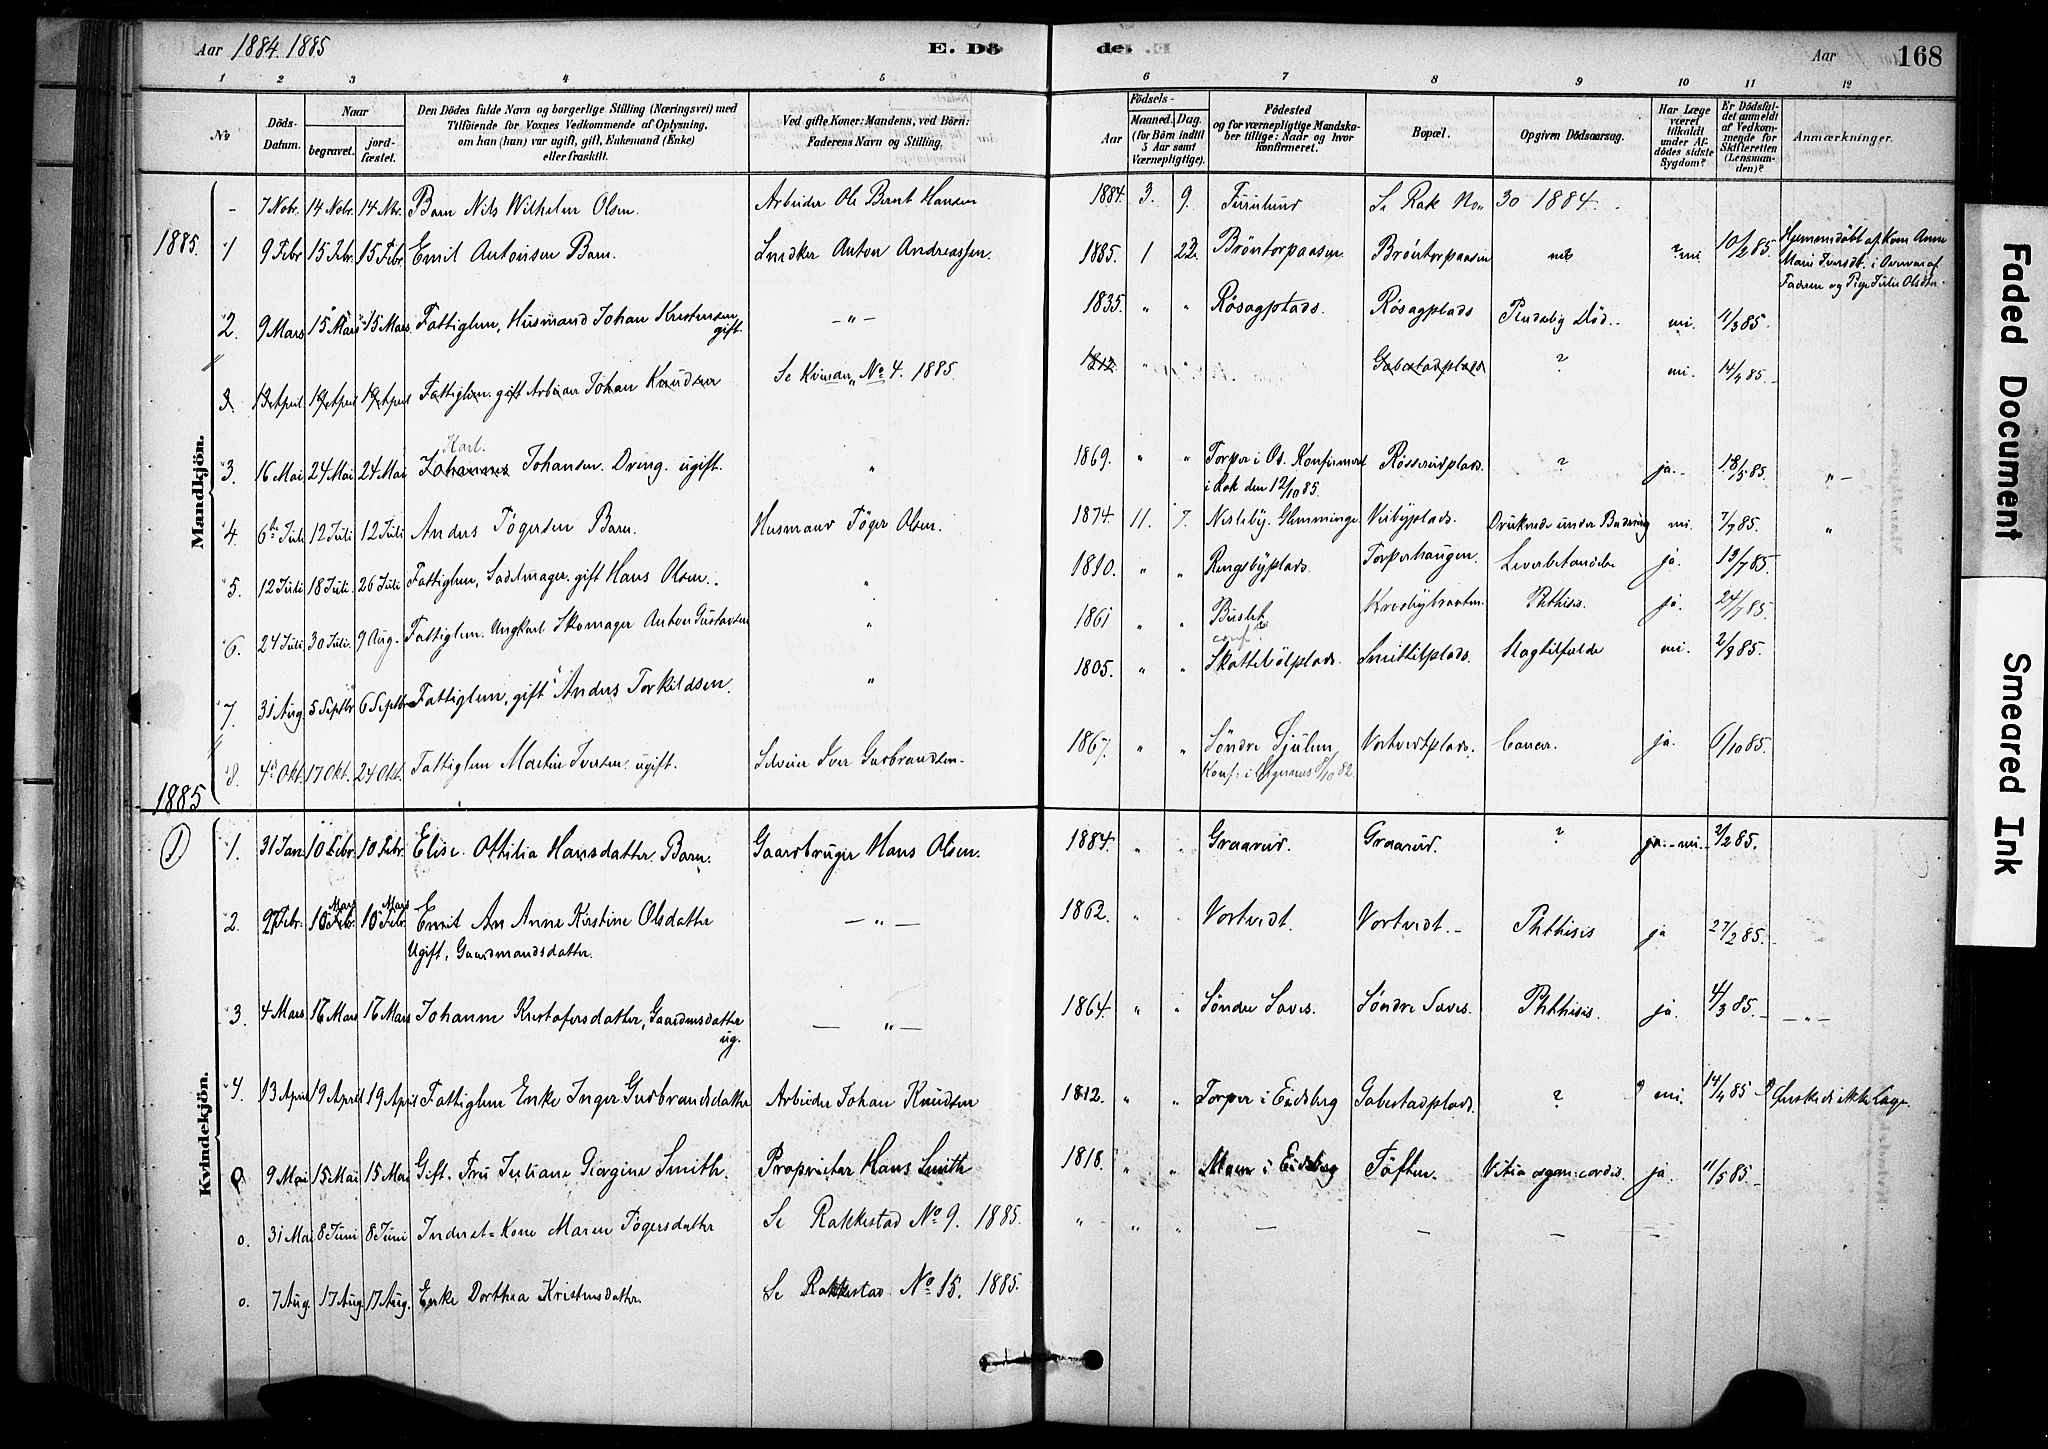 Aar 1884. 1885
E. Dö
de:
Aar
168
1 2 3 4 5 6 7 8 9 10 11 12
No
Döds-Datum.
Naar
begravet.
jordfæstet.
Den Dödes fulde Navn og borgerlige Stilling (Næringsvei) med
Tilföiende for Voxnes Vedkommende af Oplysning,
om han (hun) var ugift, gift, Enkemand (Enke)
eller fraskilt.
Ved gifte Koner: Mandens, ved Börn:
Faderens Navn og Stilling.
Födsels-
Aar
Maaned. Dag.
(for Börn indtil
5 Aar samt
Værnepligtige).
Födested
og for værnepligtige Mandska-
ber tillige: Naar og hvor
konfirmeret.
Bopæl.
Opgiven Dödsaarsag.
Har Læge
været
tilkaldt
under Af-
dödes sidste
Sygdom?
Er Dödsfal-
det anmeldt
af Vedkom-
mende for
Skifteretten
(Lensman-
den)?
Anmærkninger.
Mandkjön.
- 7 Nobr. 14 Nobr. 14 Nbr. Barn Nils Wilhelm Olsen. Arbeider Ole Bernt Hansen 1884. 3. 9. Furulund Se Rak No 30 1884.
1885. 1 9 Febr 15 Febr. 15 Febr. Emil Antonsen Barn. Snedker Anton Andreassen. 1885. 1 22. Bröntorpaasen Bröntorpaasen ? nei. 10/2 85. Hjemmedöbt af Kone Anne
Marie Iversdt. i Overvær af
Faderen og Pige Julie Olsdtr.
2 9 Mars 15 Mars 15 Mars. Fattiglem, Husmand Johan Kristensen gift. - " - 1835. " " Rösagplads. Rösagplads Pludselig Död.. nei. 11/3 85.
3 13 April 19 April 19 April Fattiglem. gift Arbeider Johan Knudsen Se Kvinder No 4. 1885. 1812 " " Gabestadplads ? nei. 14/4 85.-
3. 16 Mai 24 Mai 24 Mai Karl Johannes Johansen. Dreng. ugift. " 1869. " " Torper i Os. Konfirmert
i Rak den 12/10 85. Rösserudplads. ? ja.- 18/5 85. " -
4. 6te Juli 12 Juli 12 Juli Anders Tögersen Barn. Husmand Töger Olsen. 1874. 11. 7. Nesleby. Glemminge Visbyplads. Druknede under Badning nei. 7/7 85. "
5. 12 Juli 18 Juli 26 Juli Fattiglem, Sadelmager. gift Hans Olsen.. " 1810. " " Ringsbyplads. Torperhaugen. Leverbetændelse ja. 13/7 85.
6. 24 Juli. 30 Juli. 9 Aug. Fattiglem. Ungkarl Skomager Anton Gustavsen " 1861 " " Buslet Krosbybraaten. Phthisis. ja. 24/7 85.
7. 31 Aug. 5 Septbr 6 Septbr Fattiglem, gift Anders Torkildsen. " 1805. " " Skattebölplads. Smittilplads. Slagtilfælde nei. 2/9 85.
8. 4de Okt. 17 Okt. 24 Okt. Fattiglem Martin Iversen ugift. Selveier Iver Gudbrandsen- 1867. " " Söndre Sjulem
Konf: i Degernes 8/10 82. Vortvedtplads. Cancer. ja. 6/10 85.
1885
1
Kvindekjön.
1. 31 Jan 10 Febr. 10 Febr. Elise Othilia Hansdatter. Barn. Gaardbruger Hans Olsen. 1884. " " Graarud. Graarud. ? ja.- nei.- 2/2 85.
2. 27 Febr. 10 Febr. Mars 10 Febr Mars Emil An Anne Kristine Olsdatter
Ugift, Gaardmandsdatter. - " - 1862. " " Vortvedt. Vortvedt.- Phthisis ja 27/2 85.-
3. 4 Mars 16 Mars 17 Mars Johanne Kristofersdatter, Gaardmsdatter
ug. - " - 1864. " " Söndre Saves. Söndre Saves. Phthisis. ja. 4/3 85.- - " -
4. 13 April 19 April 19 April Fattiglem Enke Inger Gudbrandsdatter Arbeider Johan Knudsen 1812. " " Torper i Eidsberg Gabestadplads. ? ? nei. 14/4 85 ? Önskede ikke Læge.
0. 9 Mai 15 Mai 15 Mai Gift. Fru Juliane Giorgine Smith. Proprietær Hans Smith 1818. " " Moen i Eidsberg Töften. Vitia organ: cordis. ja. 11/5 85.-
0. 31 Mai 8 Juni 8 Juni Inderst-Kone Maren Tögersdatter Se Rakkestad No 9. 1885. " " " - - - -
0. 7 Aug. 17 Aug 17 Aug. Enke Dorthea Kristensdatter. Se Rakkestad No 15. 1885.
Faded Document Smeared Ink